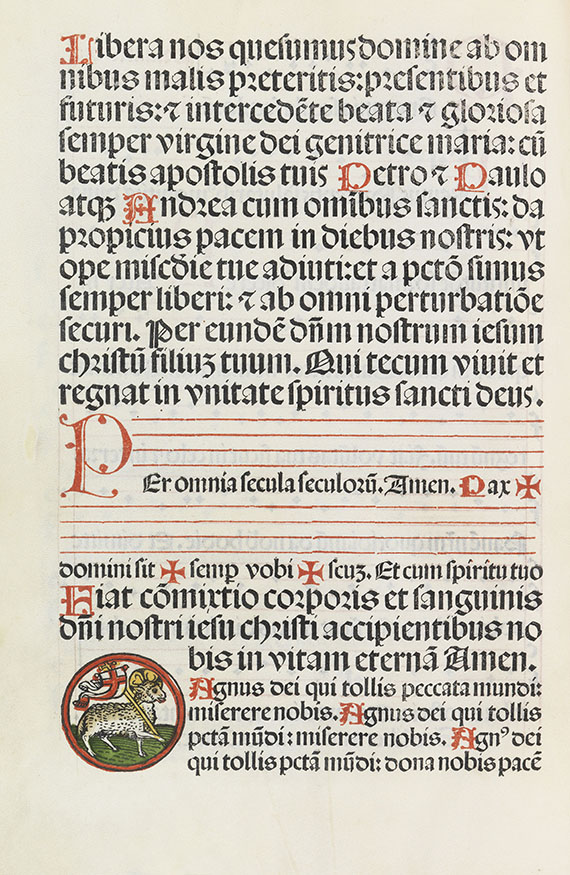 Libera nos quesumus domine ab om
nibus malis preteritis: presentibus et
futuris: ⁊ intercedēte beata ⁊ gloriosa
semper virgine dei genitrice maria: cū
beatis apostolis tuis Petro ⁊ Paulo
atqꝫ Andrea cum omībus sanctis: da
propicius pacem in diebus nostris: vt
ope miscḋie tue adiuti: et a pctō simus
semper liberi: ⁊ ab omni perturbatiōe
securi. Per eundē dn̄m nostrum iesum
christū filiuꝫ tuum. Qui tecum viuit et
regnat in vnitate spiritus sancti deus.
PEr omnia secula seculorū. Amen. Pax ✠
domini sit ✠ semꝑ vobi ✠ scuꝫ. Et cum spiritu tuo
Fiat cōmixtio corporis et sanguinis
dn̄i nostri iesu christi accipientibus no
bis in vitam eternā Amen.
Agnus dei qui tollis peccata mundi:
miserere nobis. Agnus dei qui tollis
pctā mūdi: miserere nobis. Agnꝰ dei
qui tollis pctā mūdi: dona nobis pacē